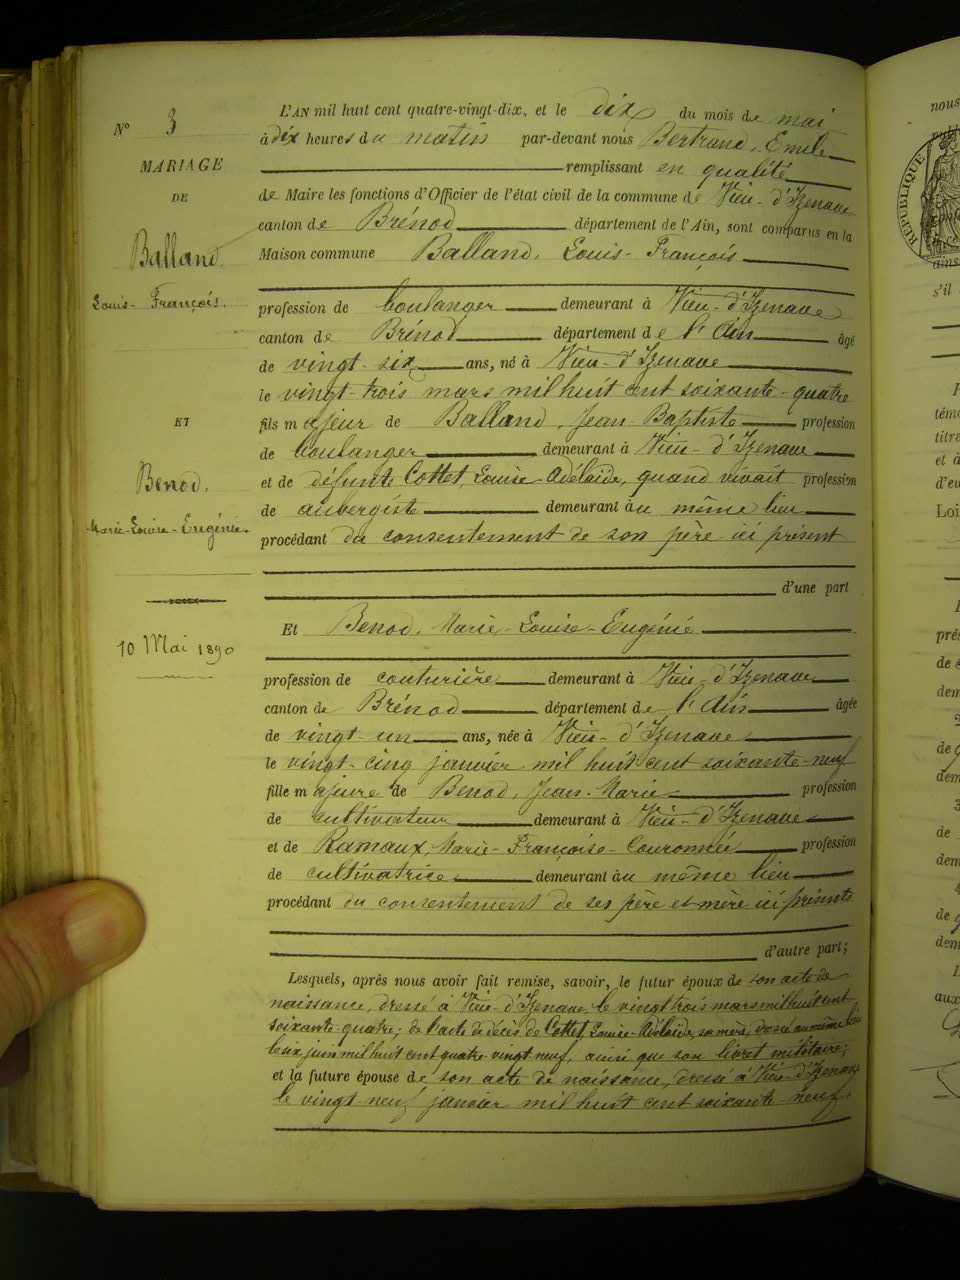 N° 3
MARIAGE
DE
Balland
Louis-François.
ET
Benod.
Marie-Louise-Eugénie.
10 Mai 1890
L'AN mil huit cent quatre-vingt-dix, et le dix du mois de mai
à dix heures du matin par-devant nous Bertrand, Emile
remplissant en qualité
de Maire les fonctions d'Officier de l'état civil de la commune de Vieu-d'Izenave
canton de Brénod département de l'Ain, sont comparus en la
Maison commune Balland, Louis-François
profession de boulanger demeurant à Vieu-d'Izenave
canton de Brénod département de l'Ain âgé
de vingt-six ans, né à Vieu-d'Izenave
le vingt-trois mars mil huit cent soixante-quatre
fils majeur de Balland, Jean-Baptiste profession
de boulanger demeurant à Vieu-d'Izenave
et de défunte Cottet, Louise-Adélaïde, quand vivait profession
de aubergiste demeurant au même lieu
procédant du consentement de son père ici présent
d'une part
Et Benod, Marie-Louise-Eugénie
profession de couturière demeurant à Vieu-d'Izenave
canton de Brénod département de l'Ain âgée
de vingt-un ans, née à Vieu-d'Izenave
le vingt-cinq janvier mil huit cent soixante-neuf
fille majeure de Benod, Jean-Marie profession
de cultivateur demeurant à Vieu-d'Izenave
et de Ramaux, Marie-Françoise-Couronnée profession
de cultivatrice demeurant au même lieu
procédant du consentement de ses père et mère ici présents
d'autre part;
Lesquels, après nous avoir fait remise, savoir, le futur époux de son acte de
naissance, dressé à Vieu-d'Izenave, le vingt trois mars mil huit cent
soixante-quatre; de l'acte de décès de Cottet, Louise-Adélaïde, sa mère, dressé au même lieu
le six juin mil huit cent quatre-vingt-neuf, ainsi que son livret militaire;
et la future épouse de son acte de naissance, dressé à Vieu-d'Izenave
le vingt-neuf janvier mil huit cent soixante-neuf.
nous
RÉPUBLIQUE
ainsi
s'il
tém
titre
et à
d'eu
Loi
prés
de
dem
de
dem
3
de
dem
4
de
dem
aux